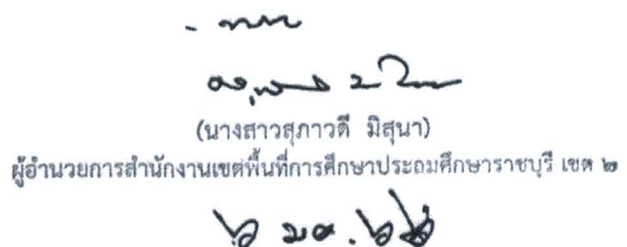 - ทราบ
(นางสาวสุภาวดี มิสุนา)
ผู้อำนวยการสำนักงานเขตพื้นที่การศึกษาประถมศึกษาราชบุรี เขต ๒